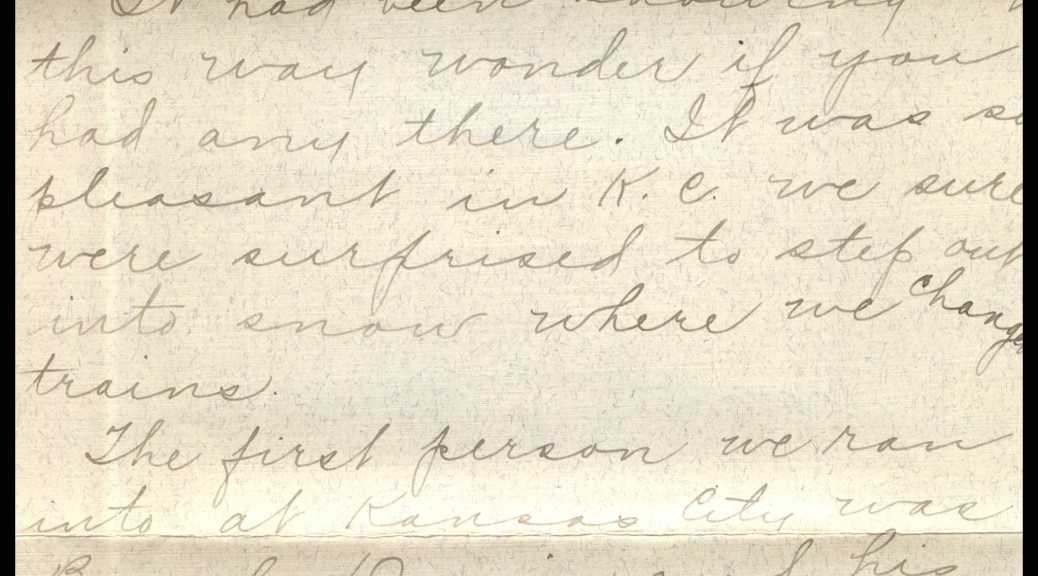 It had been snowing
this way wonder if you
had any there. It was so
pleasant in K.C. we sure
were surprised to step out
into snow where we changed
trains.
The first person we ran
into at Kansas City was
his